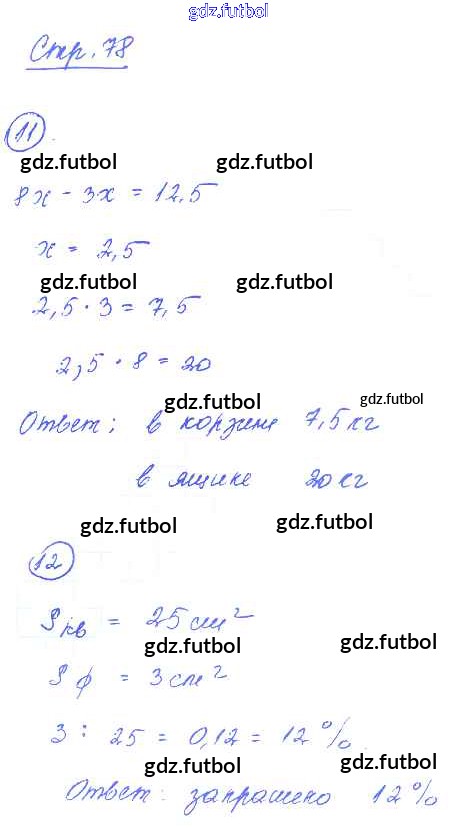 gdz.futbol
Стр. 78
11
gdz.futbol gdz.futbol
8x - 3x = 12,5
x = 2,5
gdz.futbol gdz.futbol
2,5 · 3 = 7,5
2,5 · 8 = 20
gdz.futbol gdz.futbol
Ответ: в корзине 7,5 кг
в ящике 20 кг
gdz.futbol gdz.futbol
12
Sкв = 25 см²
gdz.futbol gdz.futbol
Sф = 3 см²
3 : 25 = 0,12 = 12 %
gdz.futbol gdz.futbol
Ответ: закрашено 12 %